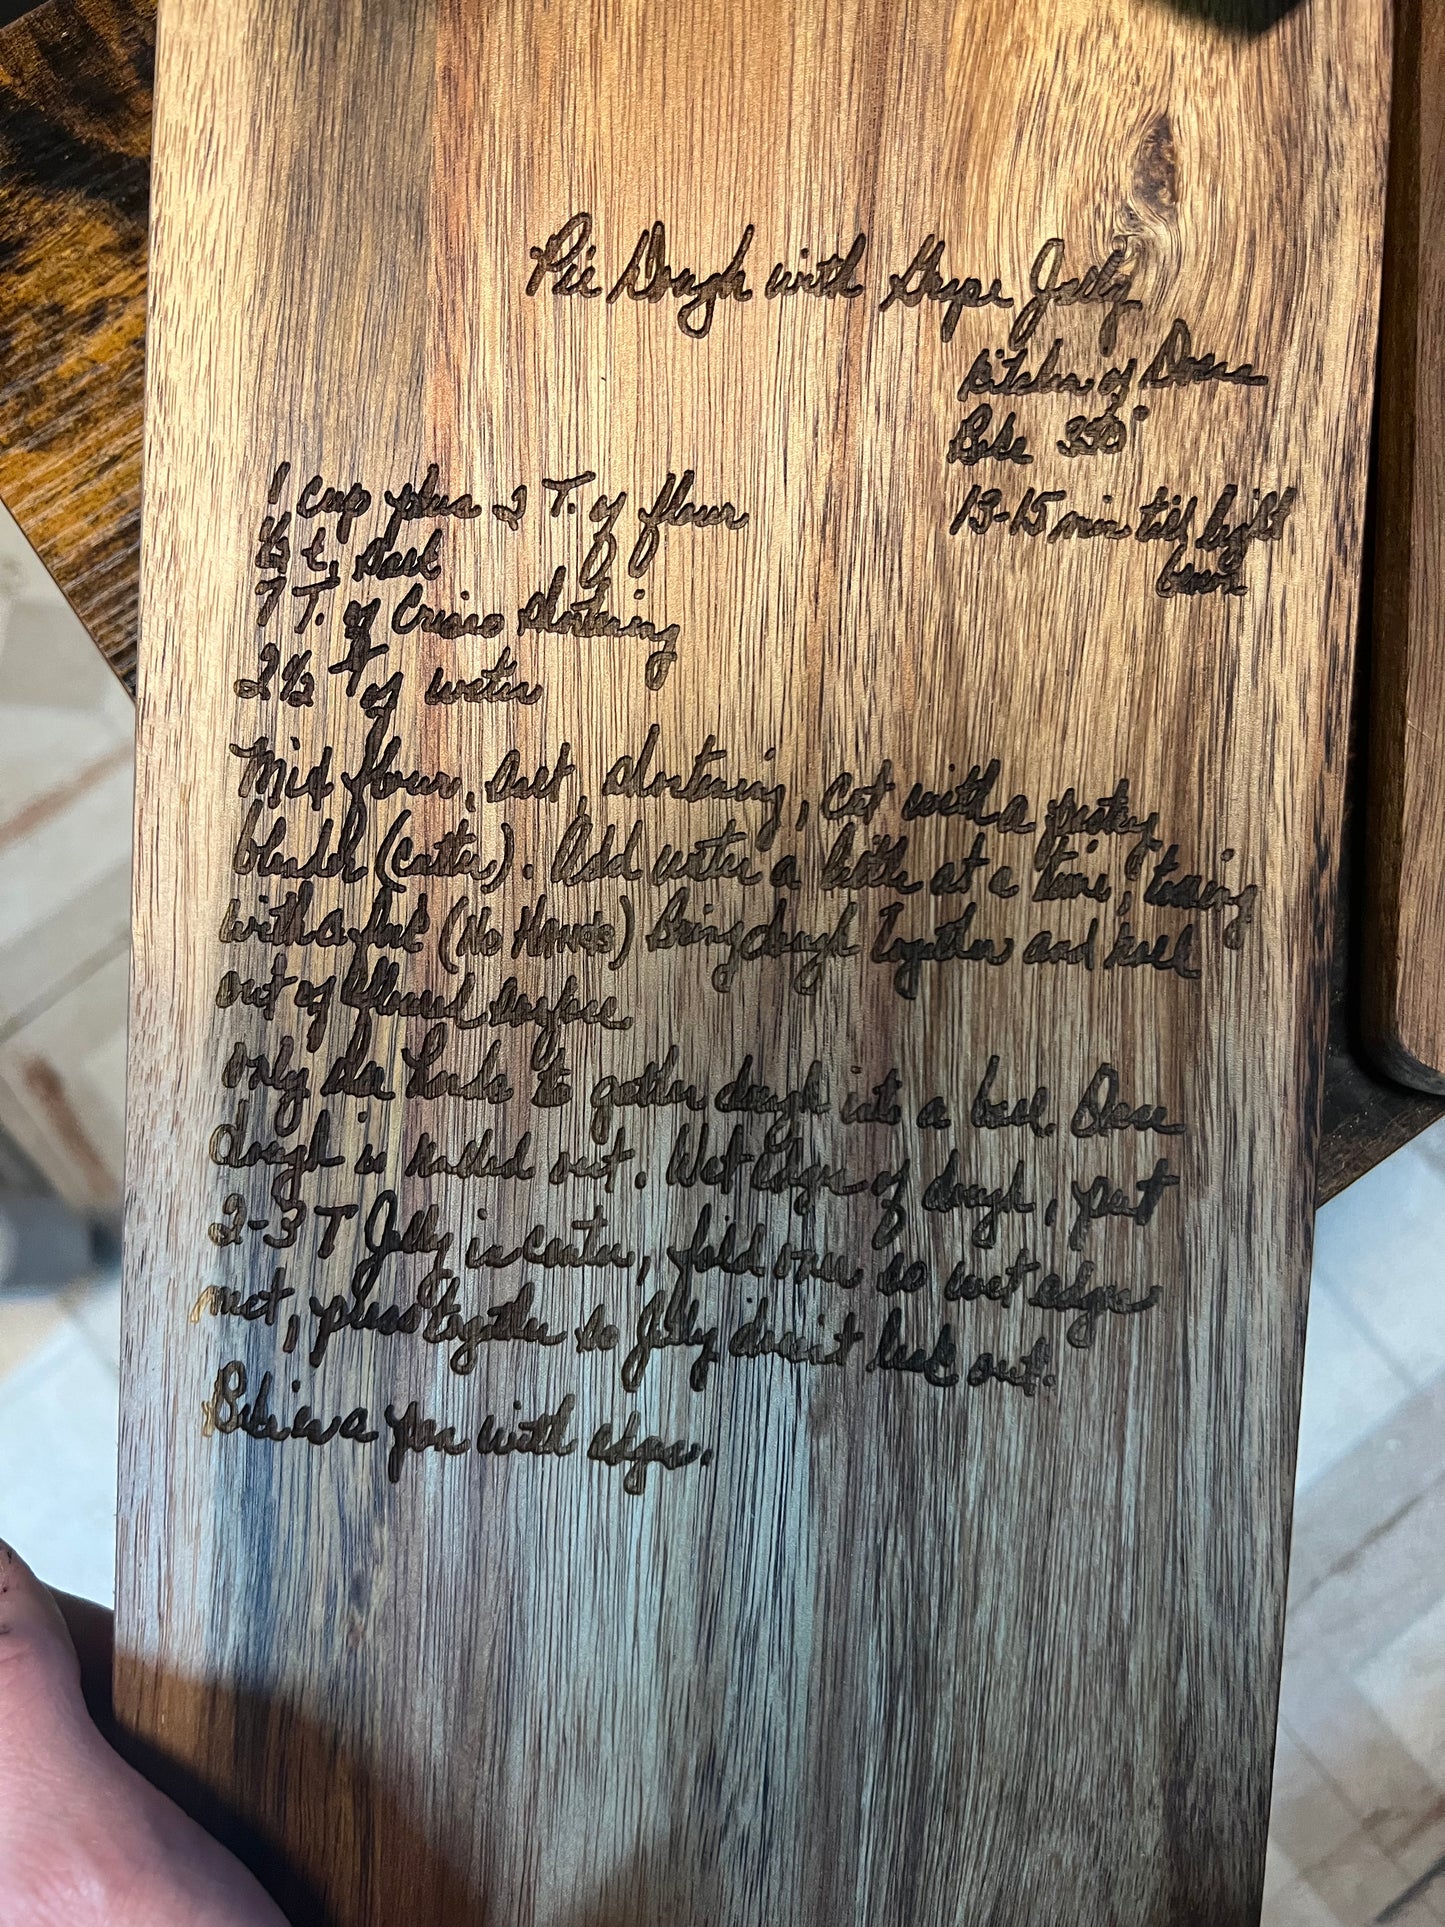 Pie Dough with Grape Jelly
Kitchen of
Bake 350°
13-15 min till light
brown
1 cup plus 2 T. of flour
1/2 t. salt
7 T. of Crisco shortening
2 1/2 T of water
Mix flour, salt, shortening, cut with a pastry
blender (cutter). Add water a little at a time, tossing
with a fork (No HANDS) Bring dough together and roll
out of floured surface
only use hands to gather dough into a ball. Once
dough is rolled out. Wet edge of dough, put
2-3 T Jelly in center, fold over so wet edges
met, press together so Jelly doesn't leak out.
you with edges.